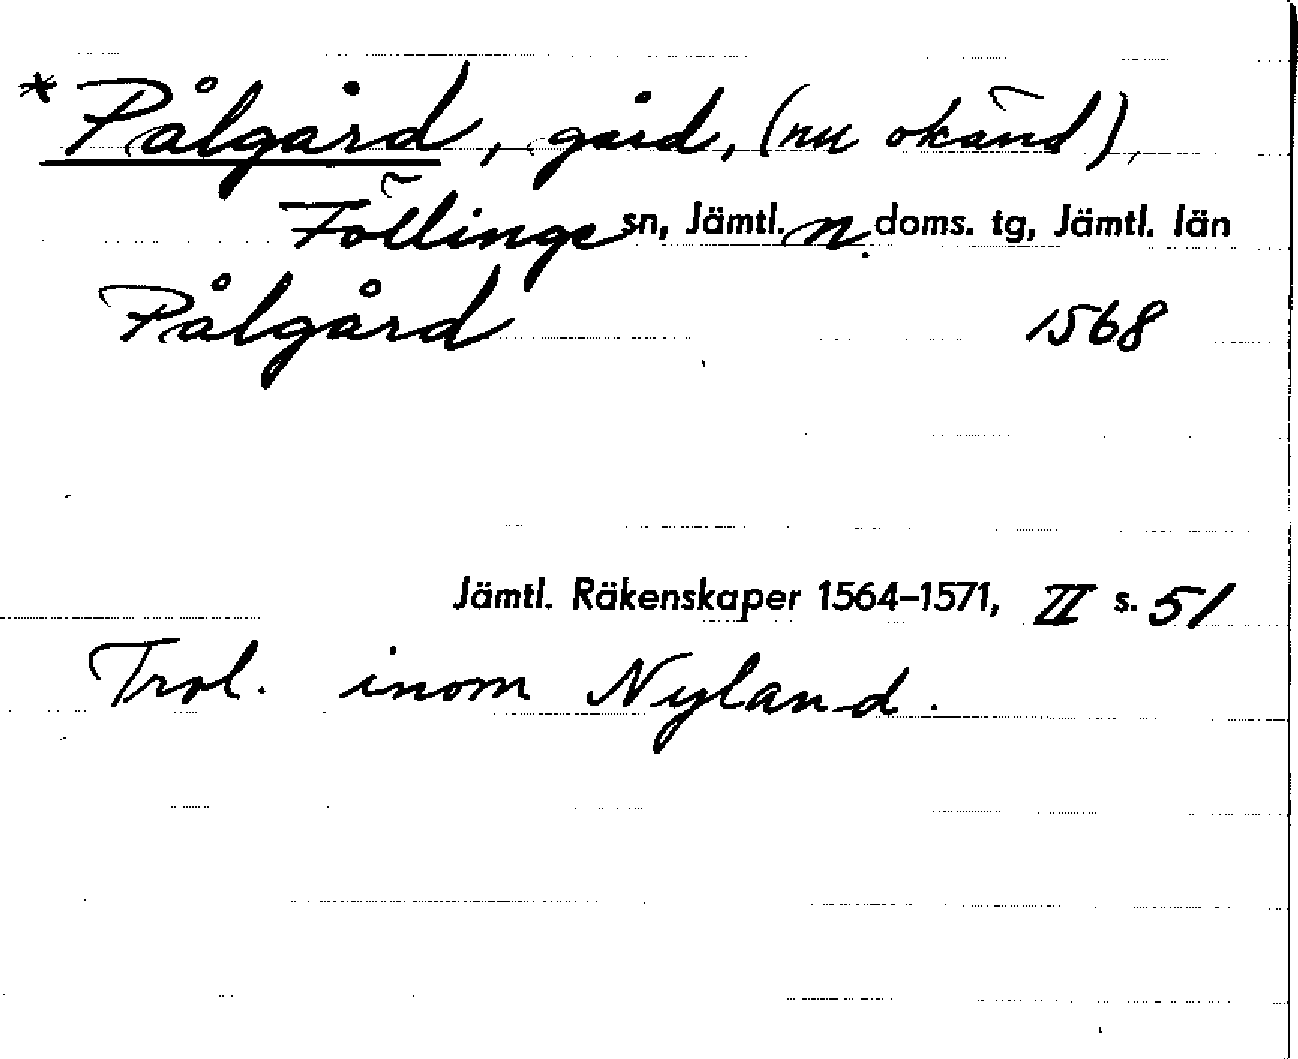 * Pålgård, gård, (nu okänd),
Föllinge sn, Jämtl. n. doms. tg, Jämtl. län
Pålgård 1568
Jämtl. Räkenskaper 1564–1571, II s. 51
Trol. inom Nyland.